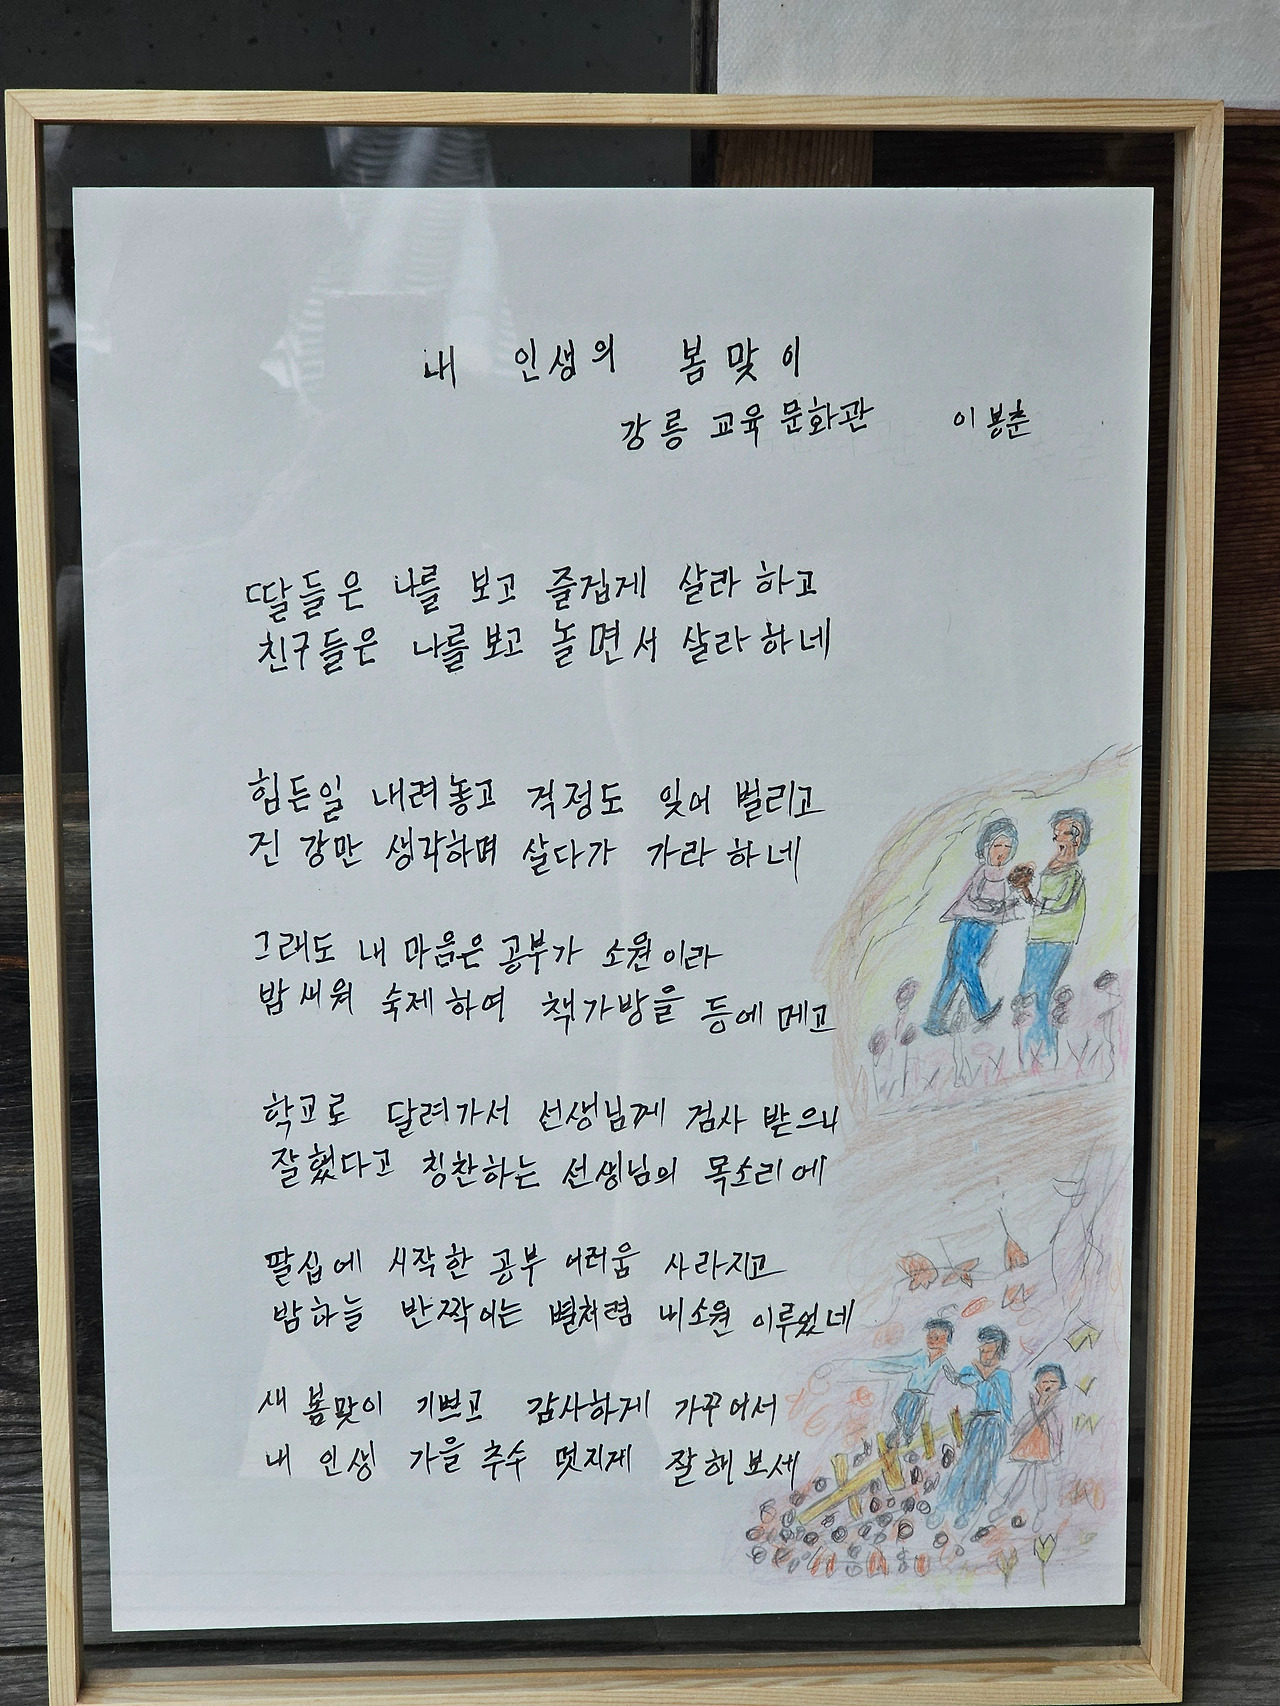 내 인생의 봄맞이
강릉 교육 문화관 이봉춘
딸들은 나를 보고 즐겁게 살라 하고
친구들은 나를 보고 놀면서 살라 하네
힘든일 내려놓고 걱정도 잊어 벌리고
진 강만 생각하며 살다가 가라 하네
그래도 내 마음은 공부가 소원이라
밤새워 숙제하여 책가방을 등에 메고
학교로 달려가서 선생님께 검사 받으니
잘했다고 칭찬하는 선생님의 목소리에
팔십에 시작한 공부 어려움 사라지고
밤하늘 반짝이는 별처럼 내소원 이루었네
새 봄맞이 기쁘고 감사하게 가꾸어서
내 인생 가을 추수 멋지게 잘해 보세